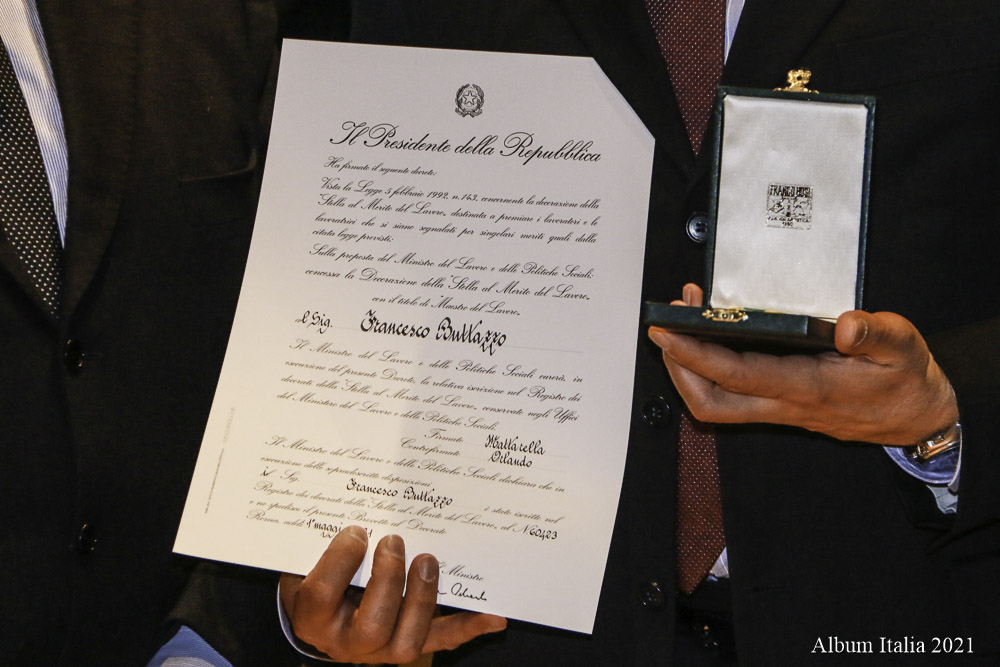 Il Presidente della Repubblica
Ha firmato il seguente decreto:
Vista la Legge 5 febbraio 1992, n. 143, concernente la decorazione della
"Stella al Merito del Lavoro", destinata a premiare i lavoratori e le
lavoratrici che si siano segnalati per singolari meriti quali dalla
citata legge previsti;
Sulla proposta del Ministro del Lavoro e delle Politiche Sociali;
concessa la Decorazione della "Stella al Merito del Lavoro",
con il titolo di "Maestro del Lavoro",
al Sig. Francesco Buttazzo
Il Ministro del Lavoro e delle Politiche Sociali curerà, in
esecuzione del presente Decreto, la relativa iscrizione nel Registro dei
decorati della "Stella al Merito del Lavoro", conservato negli Uffici
del Ministero del Lavoro e delle Politiche Sociali.
Firmato Mattarella
Controfirmato Orlando
Il Ministro del Lavoro e delle Politiche Sociali dichiara che in
esecuzione delle sopradescritte disposizioni
il Sig. Francesco Buttazzo è stato iscritto nel
Registro dei decorati della "Stella al Merito del Lavoro", al N. 60423
e ne spedisce il presente Brevetto al Decorato
Roma, addì 1° maggio
Il Ministro
Album Italia 2021